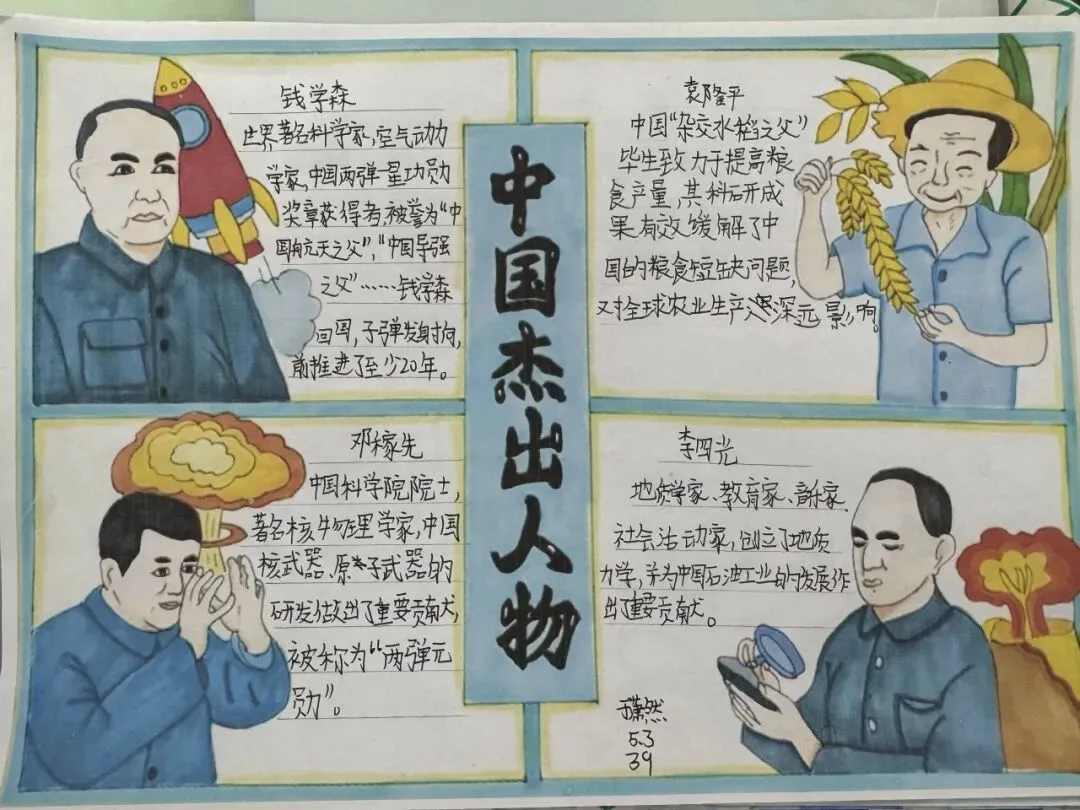 中国杰出人物
钱学森
世界著名科学家,空气动力
学家,中国两弹一星功勋
奖章获得者,被誉为“中
国航天之父”,“中国导弹
之父”……钱学森
回国,子弹发射向
前推进了至少20年。
袁隆平
中国“杂交水稻之父”
毕生致力于提高粮
食产量,其科研成
果有效缓解了中
国的粮食短缺问题,
对全球农业生产 深远影响。
邓稼先
中国科学院院士,
著名核物理学家,中国
核武器、原子武器的
研发做出了重要贡献,
被称为“两弹元
勋”。
李四光
地质学家、教育家、音乐家、
社会活动家,创立了地质
力学,并为中国石油工业的发展作
出了重要贡献。
然
5.3
39